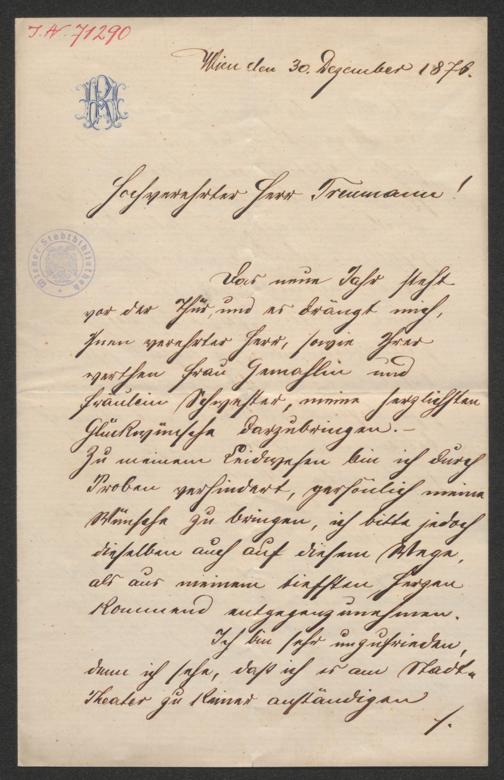 I.N. 71290
Wien den 30. Dezember 1876.
RH
Hochverehrter Herr Treumann!
Wiener Stadtbibliothek
Das neue Jahr steht
vor der Thür, und es drängt mich,
Ihnen verehrter Herr, sowie Ihrer
werthen Frau Gemahlin und
Fräulein Schwester, meine herzlichsten
Glückwünsche darzubringen. –
Zu meinem Leidwesen bin ich durch
Proben verhindert, persönlich meine
Wünsche zu bringen, ich bitte jedoch
dieselben auch auf diesem Wege,
als aus meinem tiefsten Herzen
kommend entgegenzunehmen.
Ich bin sehr unzufrieden,
denn ich sehe, daß ich es am Stadt-
Theater zu keiner anständigen
./.